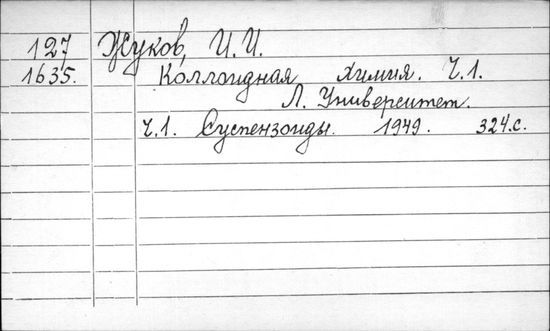 127 Жуков, И.И.
1635. Коллоидная химия. Ч.1.
Л. Университет.
Ч.1. Суспензоиды. 1949. 324.с.